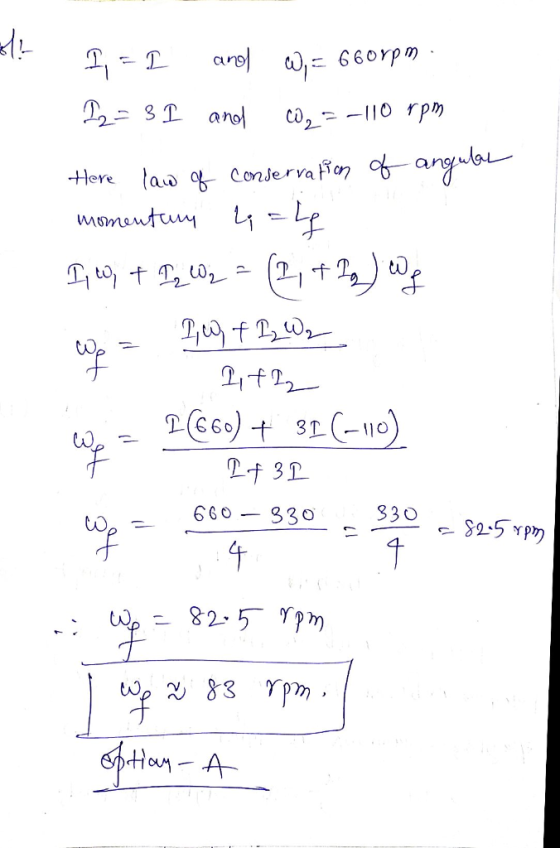 Sol:-
I₁ = I and ω₁ = 660rpm.
I₂ = 3I and ω₂ = -110 rpm
Here law of conservation of angular
momentum Lᵢ = L_f
I₁ω₁ + I₂ω₂ = (I₁ + I₂) ω_f
ω_f = (I₁ω₁ + I₂ω₂) / (I₁ + I₂)
ω_f = (I(660) + 3I(-110)) / (I + 3I)
ω_f = (660 - 330) / 4 = 330 / 4 = 82.5 rpm
∴ ω_f = 82.5 rpm
ω_f ≈ 83 rpm.
option - A